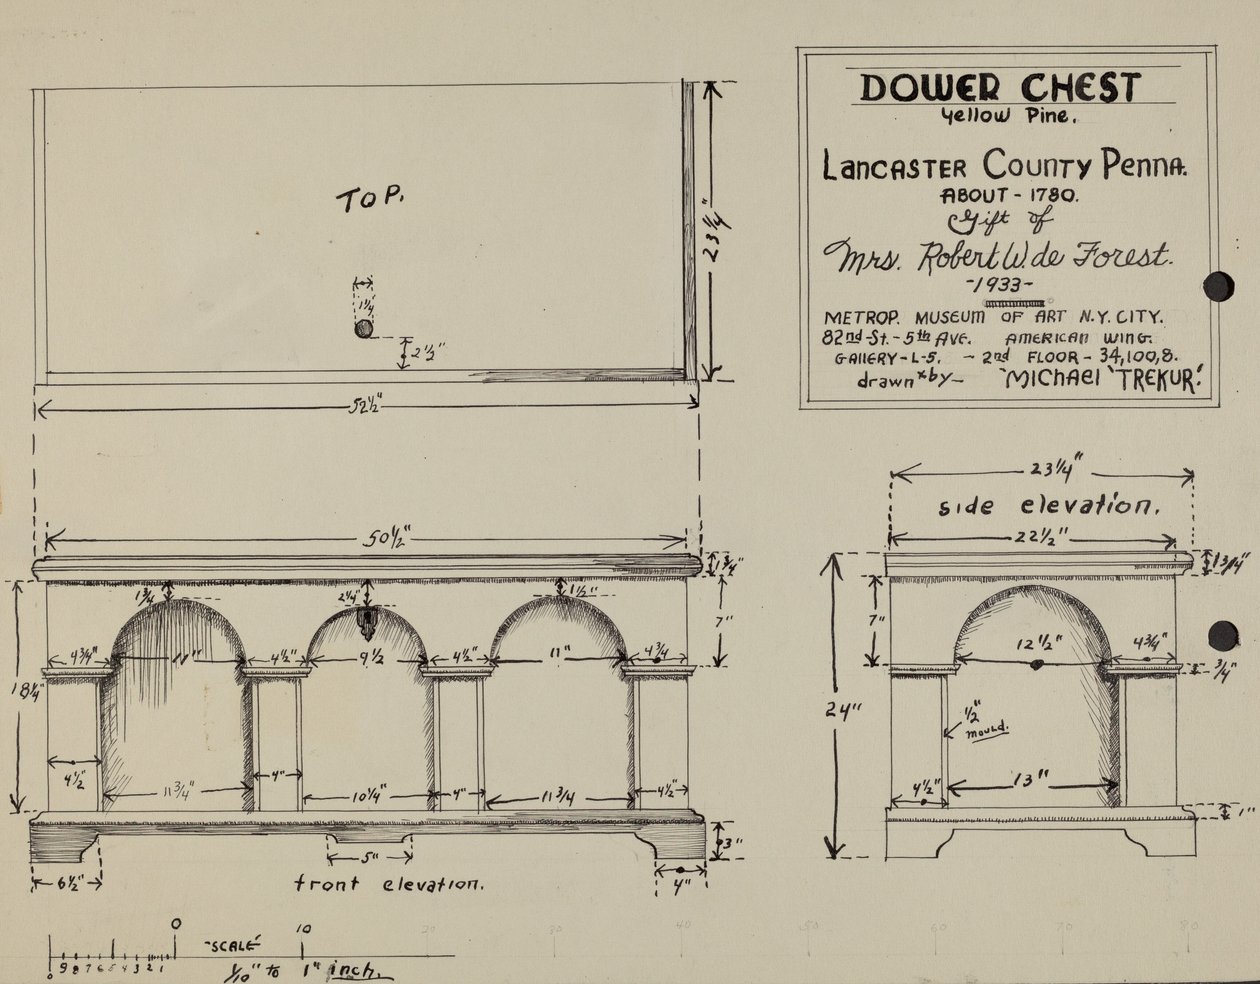 DOWER CHEST
Yellow Pine.
LANCASTER COUNTY PENNA.
ABOUT - 1780.
Gift of
Mrs. Robert W. de Forest.
-1933-
METROP. MUSEUM OF ART N.Y. CITY.
82nd-St.-5th AVE. AMERICAN WING.
GALLERY-L-5. - 2nd FLOOR - 34,100,8.
drawn by - MICHAEL TREKUR.
TOP.
23 1/4"
1 1/4"
2 1/2"
52 1/2"
50 1/2"
1 3/4"
1 3/4 2 1/4" 1 1/2"
7"
4 3/4" 11" 4 1/2" 9 1/2 4 1/2" 11" 4 3/4
18 1/4"
4 1/2" 4" 4" 4 1/2"
11 3/4" 10 1/4" 11 3/4
3"
6 1/2" 5" 4"
front elevation.
23 1/4"
side elevation.
22 1/2"
1 3/4"
7"
12 1/2" 4 3/4"
3/4"
24"
1/2"
mould.
4 1/2" 13"
1"
0 10 20 30 40 50 60 70 80
-SCALE-
9 8 7 6 5 4 3 2 1
0
1/10" to 1" inch.